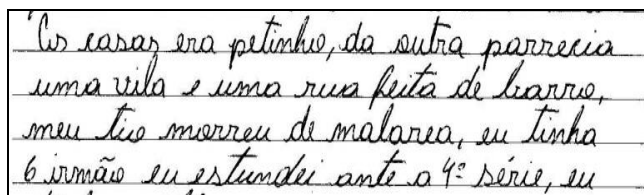 As casas era petinho, da outra parrecia
uma vila e uma rua feita de barro,
meu tio morreu de malarea, eu tinha
6 irmão eu estundei ante a 4ª série, eu